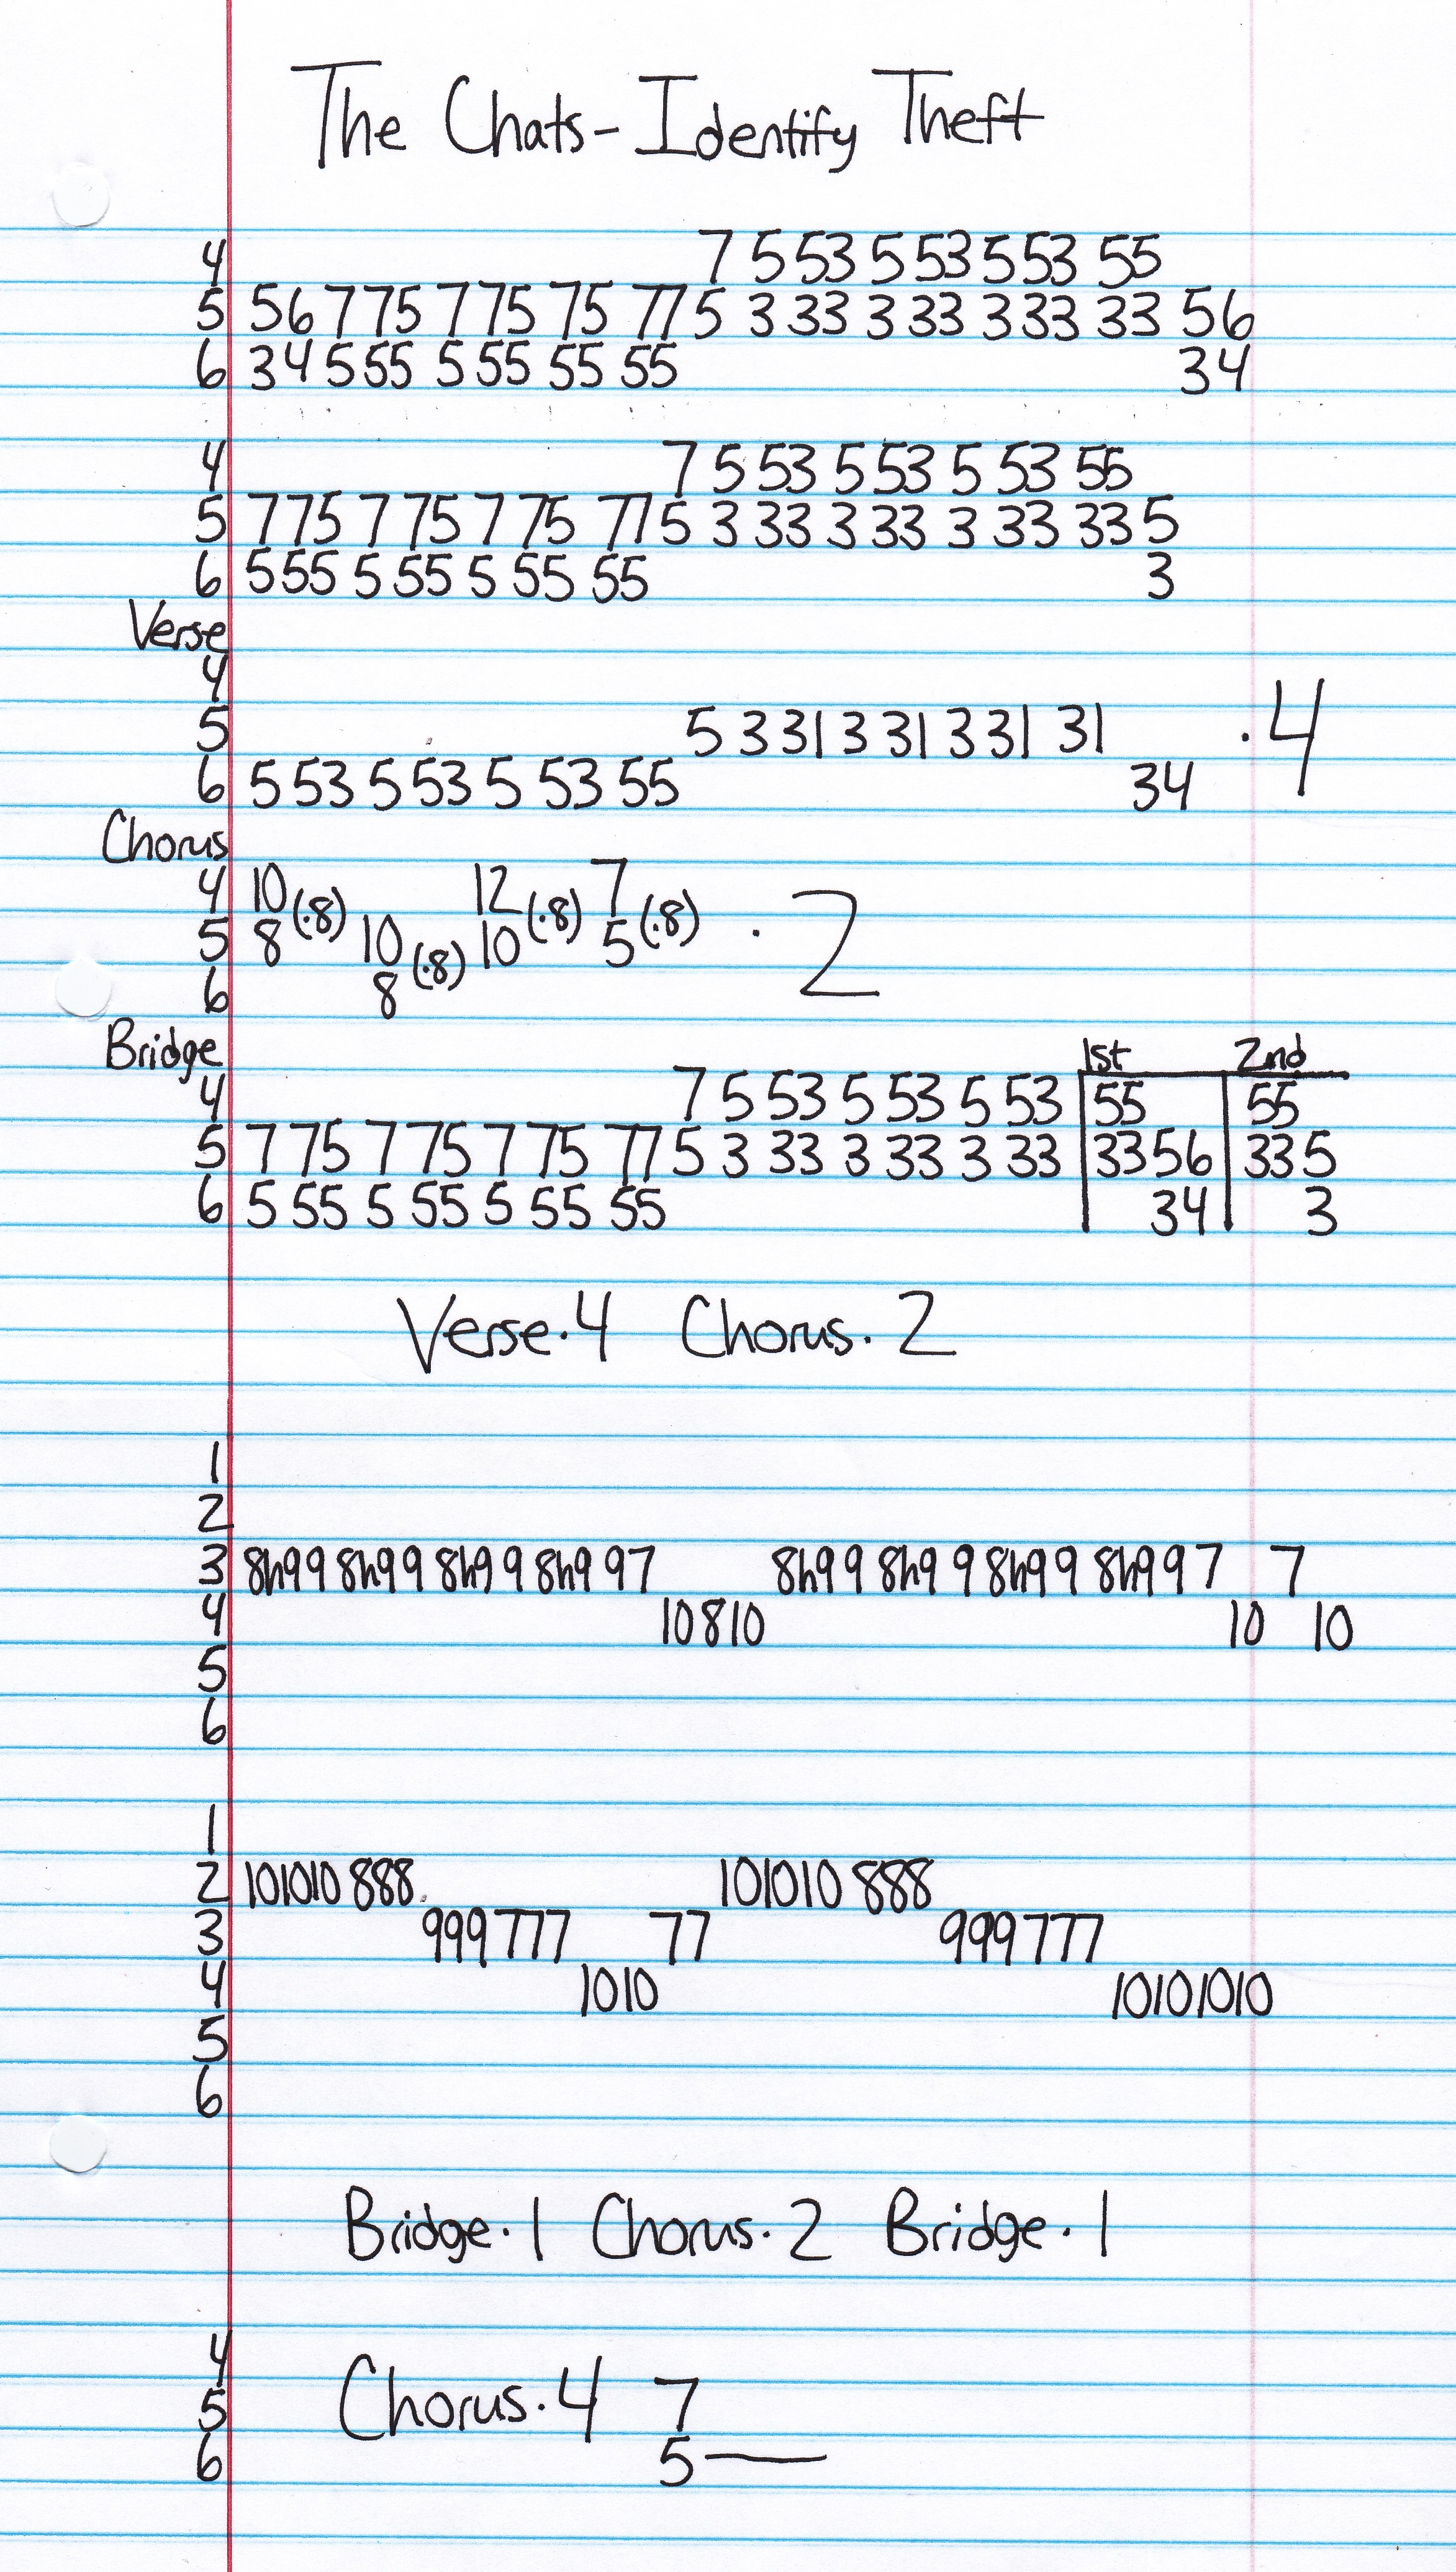 The Chats- Identify Theft
4 7 5 53 5 53 5 53 55
5 56 7 75 7 75 75 77 5 3 33 3 33 3 33 33 56
6 34 5 55 5 55 55 55 34
4 7 5 53 5 53 5 53 55
5 7 75 7 75 7 75 77 5 3 33 3 33 3 33 33 5
6 5 55 5 55 5 55 55 3
Verse
4
5 5 3 31 3 31 3 31 31 ·4
6 5 53 5 53 5 53 55 34
Chorus
4 10 (·8) 12 (·8) 7 (·8)
5 8 10 (·8) 10 5 · 2
6 8
Bridge 1st 2nd
4 7 5 53 5 53 5 53 55 55
5 7 75 7 75 7 75 77 5 3 33 3 33 3 33 33 56 33 5
6 5 55 5 55 5 55 55 34 3
Verse·4 Chorus·2
1
2
3 8h99 8h99 8h99 8h9 97 8h99 8h99 8h99 8h99 7 7
4 10 8 10 10 10
5
6
1
2 101010 888 101010 888
3 999 777 77 999 777
4 1010 10101010
5
6
Bridge·1 Chorus·2 Bridge·1
4
5 Chorus·4 7
6 5—